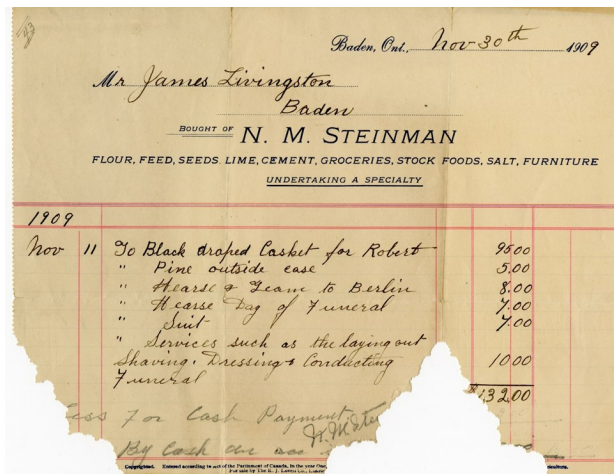 Baden, Ont., Nov 30th 1909
Mr James Livingston
Baden
BOUGHT OF N. M. STEINMAN
FLOUR, FEED, SEEDS. LIME, CEMENT, GROCERIES, STOCK FOODS, SALT, FURNITURE
UNDERTAKING A SPECIALTY
1909
Nov 11 To Black draped Casket for Robert 95.00
" Pine outside case 5.00
" Hearse & Team to Berlin 8.00
" Hearse Day of Funeral 7.00
" Suit 7.00
" Services such as the laying out
Shaving, Dressing & Conducting 10.00
Funeral
$132.00
For Cash Payment
By Cash
Copyrighted. Entered according to act of the Parliament of Canada, in the year One
For sale by The